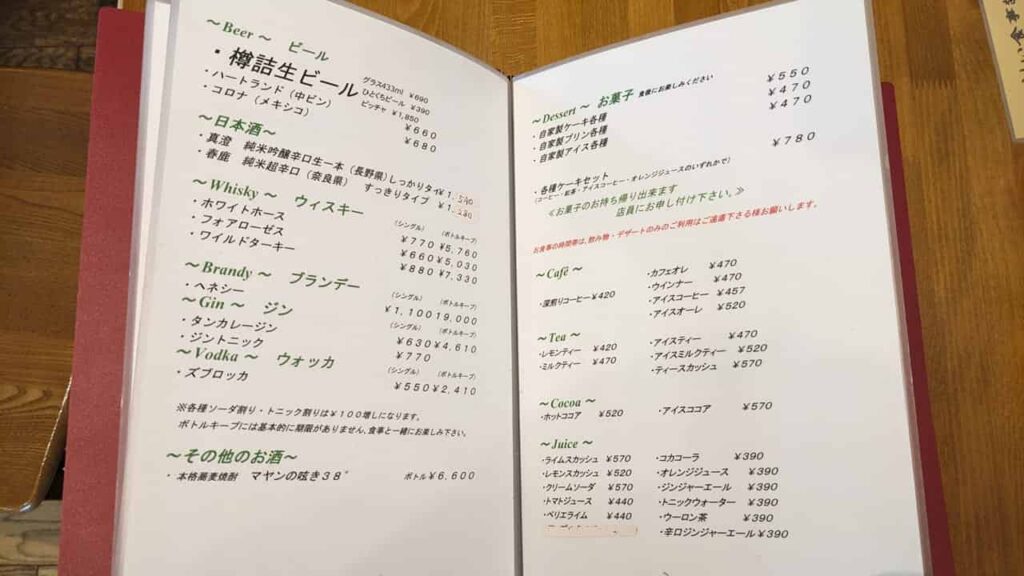 ～Beer～ ビール
・樽詰生ビール グラス433ml ¥690
ひとくちビール ¥390
ピッチャ ¥1,850
・ハートランド（中ビン） ¥660
・コロナ（メキシコ） ¥680
～日本酒～
・真澄 純米吟醸辛口生一本（長野県）しっかりタイプ
・春鹿 純米超辛口（奈良県） すっきりタイプ
～Whisky～ ウィスキー
（シングル） （ボトルキープ）
・ホワイトホース ¥770 ¥5,760
・フォアローゼス ¥660 ¥5,030
・ワイルドターキー ¥880 ¥7,330
～Brandy～ ブランデー
（シングル） （ボトルキープ）
・ヘネシー ¥1,100 19,000
～Gin～ ジン
（シングル） （ボトルキープ）
・タンカレージン ¥630 ¥4,610
・ジントニック ¥770
～Vodka～ ウォッカ
（シングル） （ボトルキープ）
・ズブロッカ ¥550 ¥2,410
※各種ソーダ割り・トニック割りは¥100増しになります。
ボトルキープには基本的に期限がありません、食事と一緒にお楽しみ下さい。
～その他のお酒～
・本格蕎麦焼酎 マヤンの呟き38° ボトル¥6,600
～Dessert～ お菓子 食後にお楽しみください
・自家製ケーキ各種 ¥550
・自家製プリン各種 ¥470
・自家製アイス各種 ¥470
・各種ケーキセット ¥780
（コーヒー・紅茶・アイスコーヒー・オレンジジュースのいずれかで）
≪お菓子のお持ち帰り出来ます
店員にお申し付け下さい。≫
お食事の時間帯は、飲み物・デザートのみのご利用はご遠慮下さる様お願いします。
～Café～
・カフェオレ ¥470
・ウインナー ¥470
・深煎りコーヒー ¥420 ・アイスコーヒー ¥457
・アイスオーレ ¥520
～Tea～
・レモンティー ¥420 ・アイスティー ¥470
・ミルクティー ¥470 ・アイスミルクティー ¥520
・ティースカッシュ ¥570
～Cocoa～
・ホットココア ¥520 ・アイスココア ¥570
～Juice～
・ライムスカッシュ ¥570 ・コカコーラ ¥390
・レモンスカッシュ ¥520 ・オレンジジュース ¥390
・クリームソーダ ¥570 ・ジンジャーエール ¥390
・トマトジュース ¥440 ・トニックウォーター ¥390
・ペリエライム ¥440 ・ウーロン茶 ¥390
・辛口ジンジャーエール ¥390